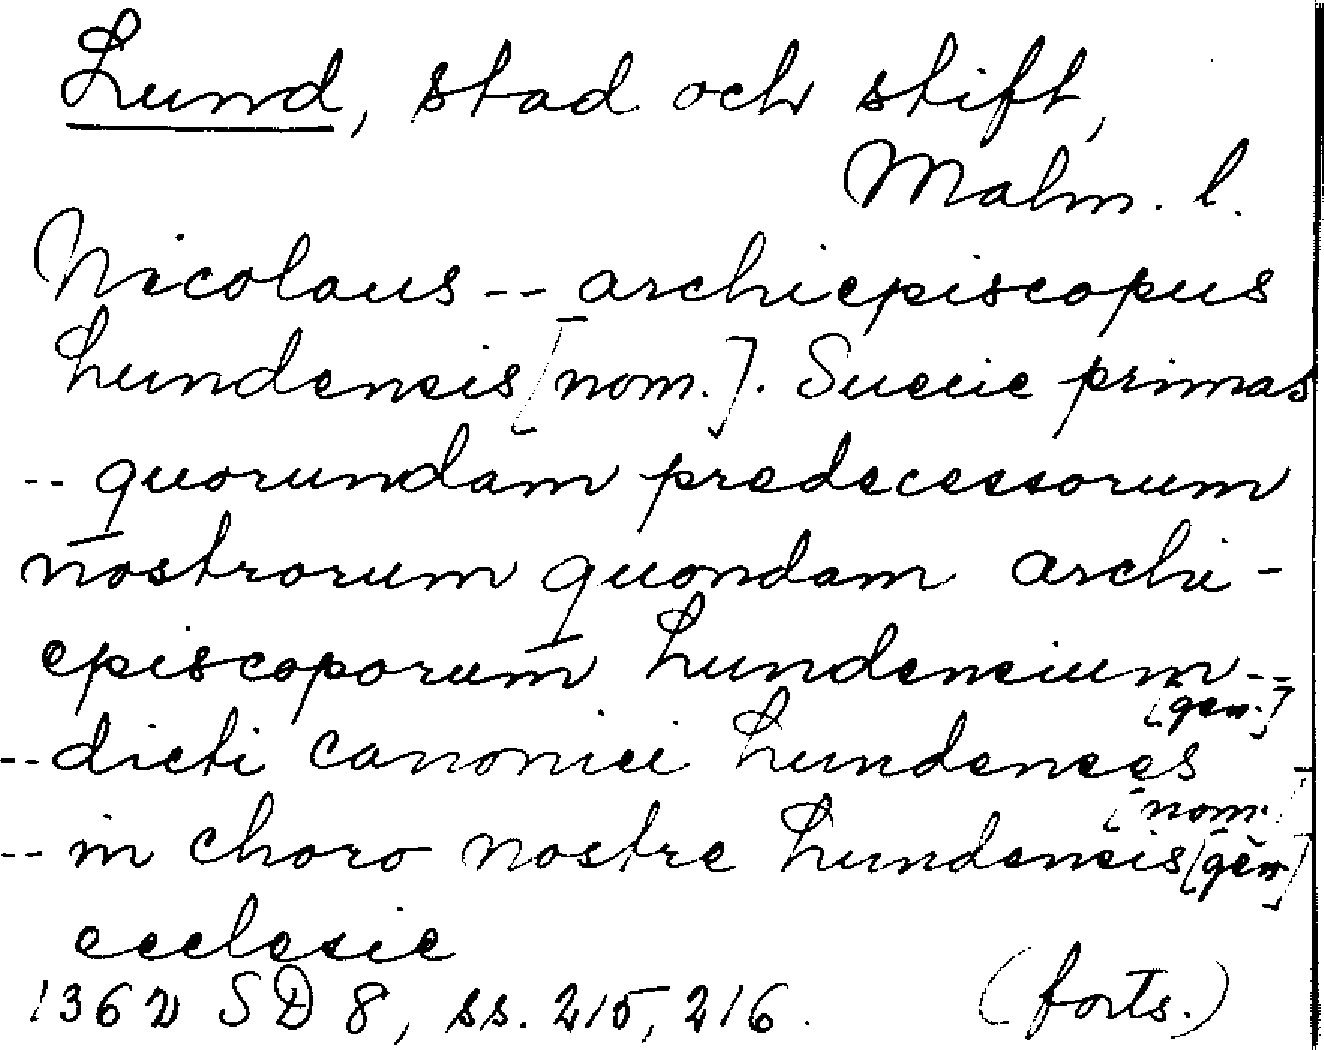 Lund, stad och stift,
Malm. l.
Nicolaus -- archiepiscopus
lundensis [nom.]. Suecie primas
-- quorundam predecessorum
nostrorum quondam archi-
episcoporum lundensium --
[gen.]
-- dicti canonici lundenses
[nom.]
-- in choro nostre lundensis [gen.]
ecclesie
1362 SD 8, ss. 215, 216. (forts.)